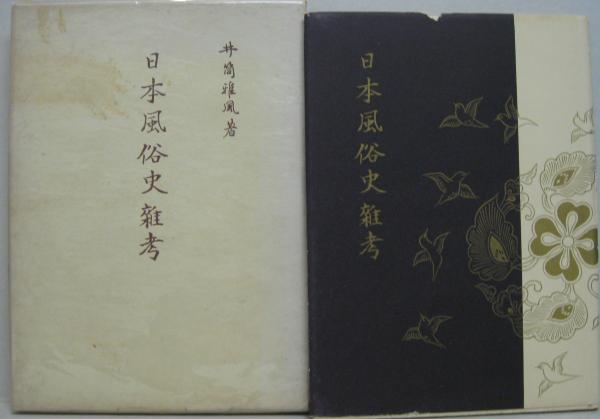 井筒雅風著
日本風俗史雜考
日本風俗史雜考